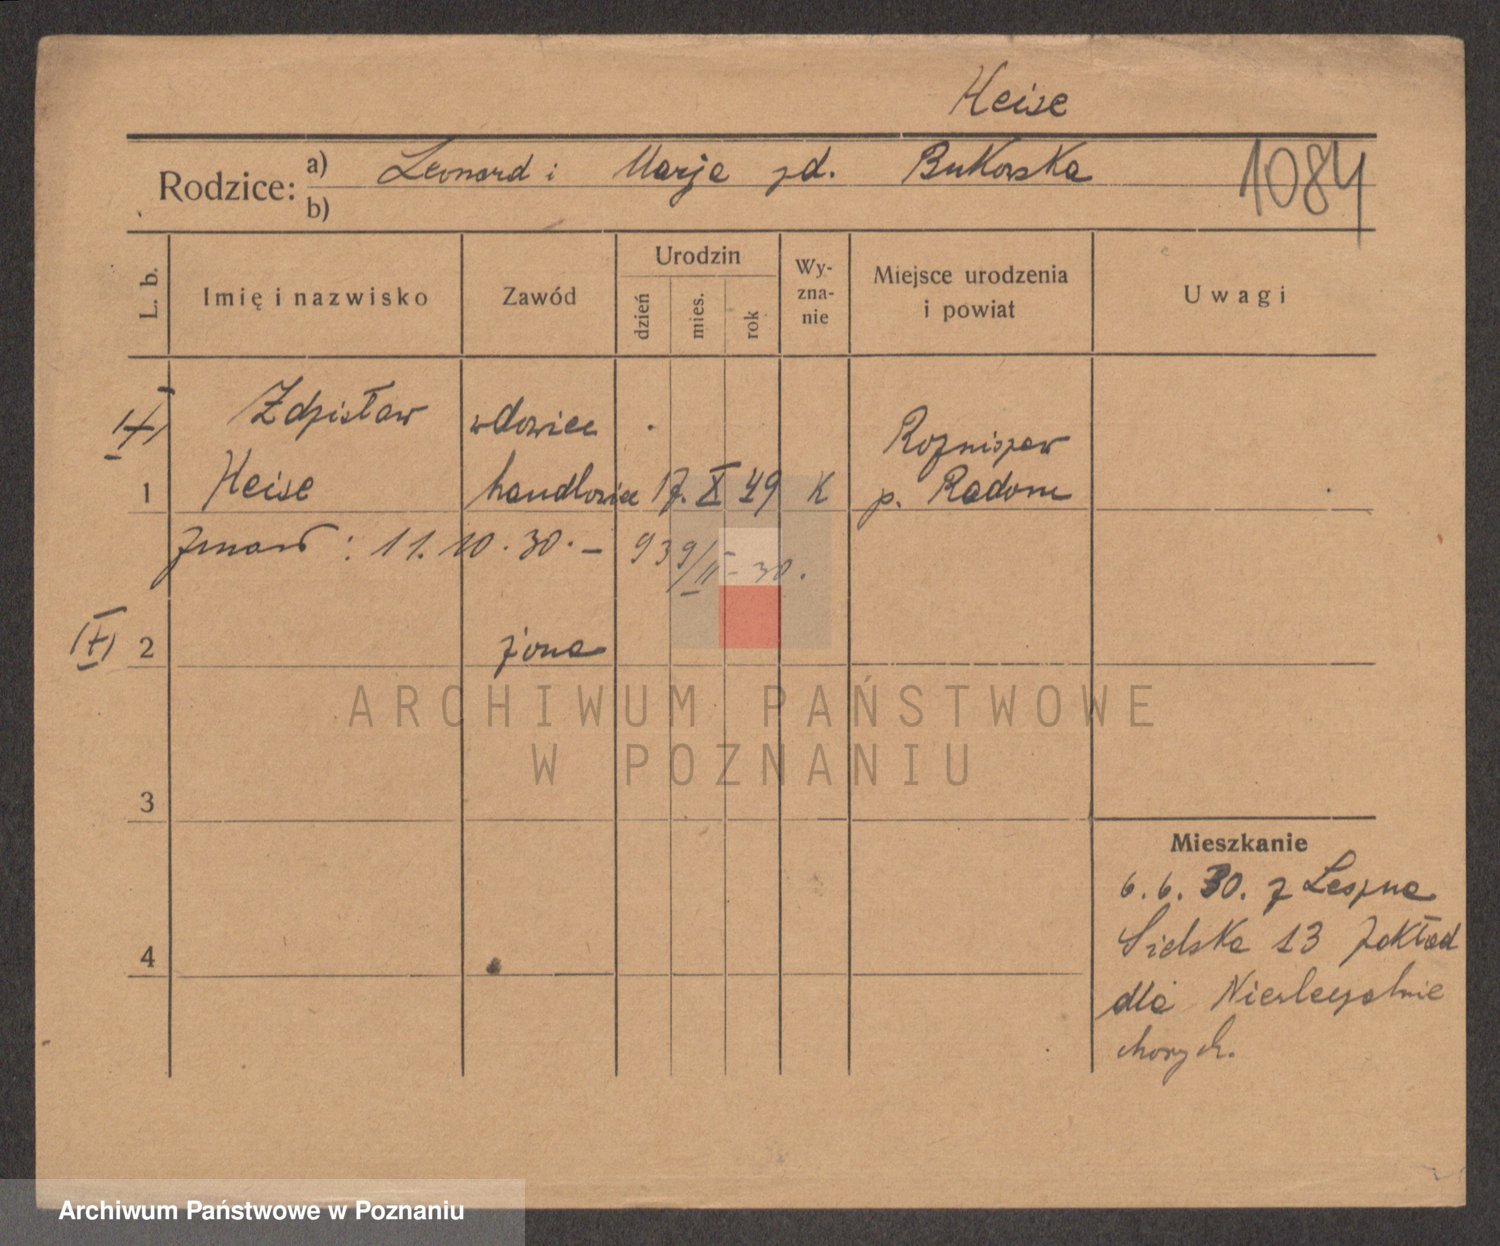 Heise
Rodzice: a) Leonard i Marja zd. Bukowska
b)
1084
L. b.
Imię i nazwisko
Zawód
Urodzin
dzień
mies.
rok
Wy-
zna-
nie
Miejsce urodzenia
i powiat
Uwagi
Zdzisław wdowiec
Rozniszew
1 Heise handlowiec 17. X 49 K p. Radom
zmarł: 11. 10. 30. – 939/II – 30.
2 żona
3
4
Mieszkanie
6. 6. 30. z Leszna
Sielska 13 Zakład
dla Nieuleczalnie
chorych.
ARCHIWUM PAŃSTWOWE
W POZNANIU
Archiwum Państwowe w Poznaniu